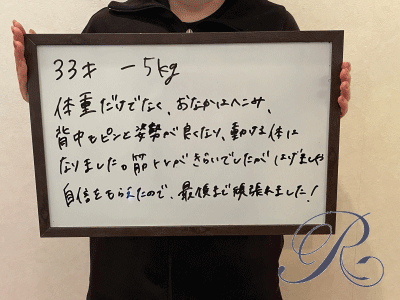 33才 -5kg
体重だけでなく、おなかはへこみ、
背中もピンと姿勢が良くなり、動ける体に
なりました。筋トレがきらいでしたが はげましや
自信をもらえたので、最後まで頑張れました!
R